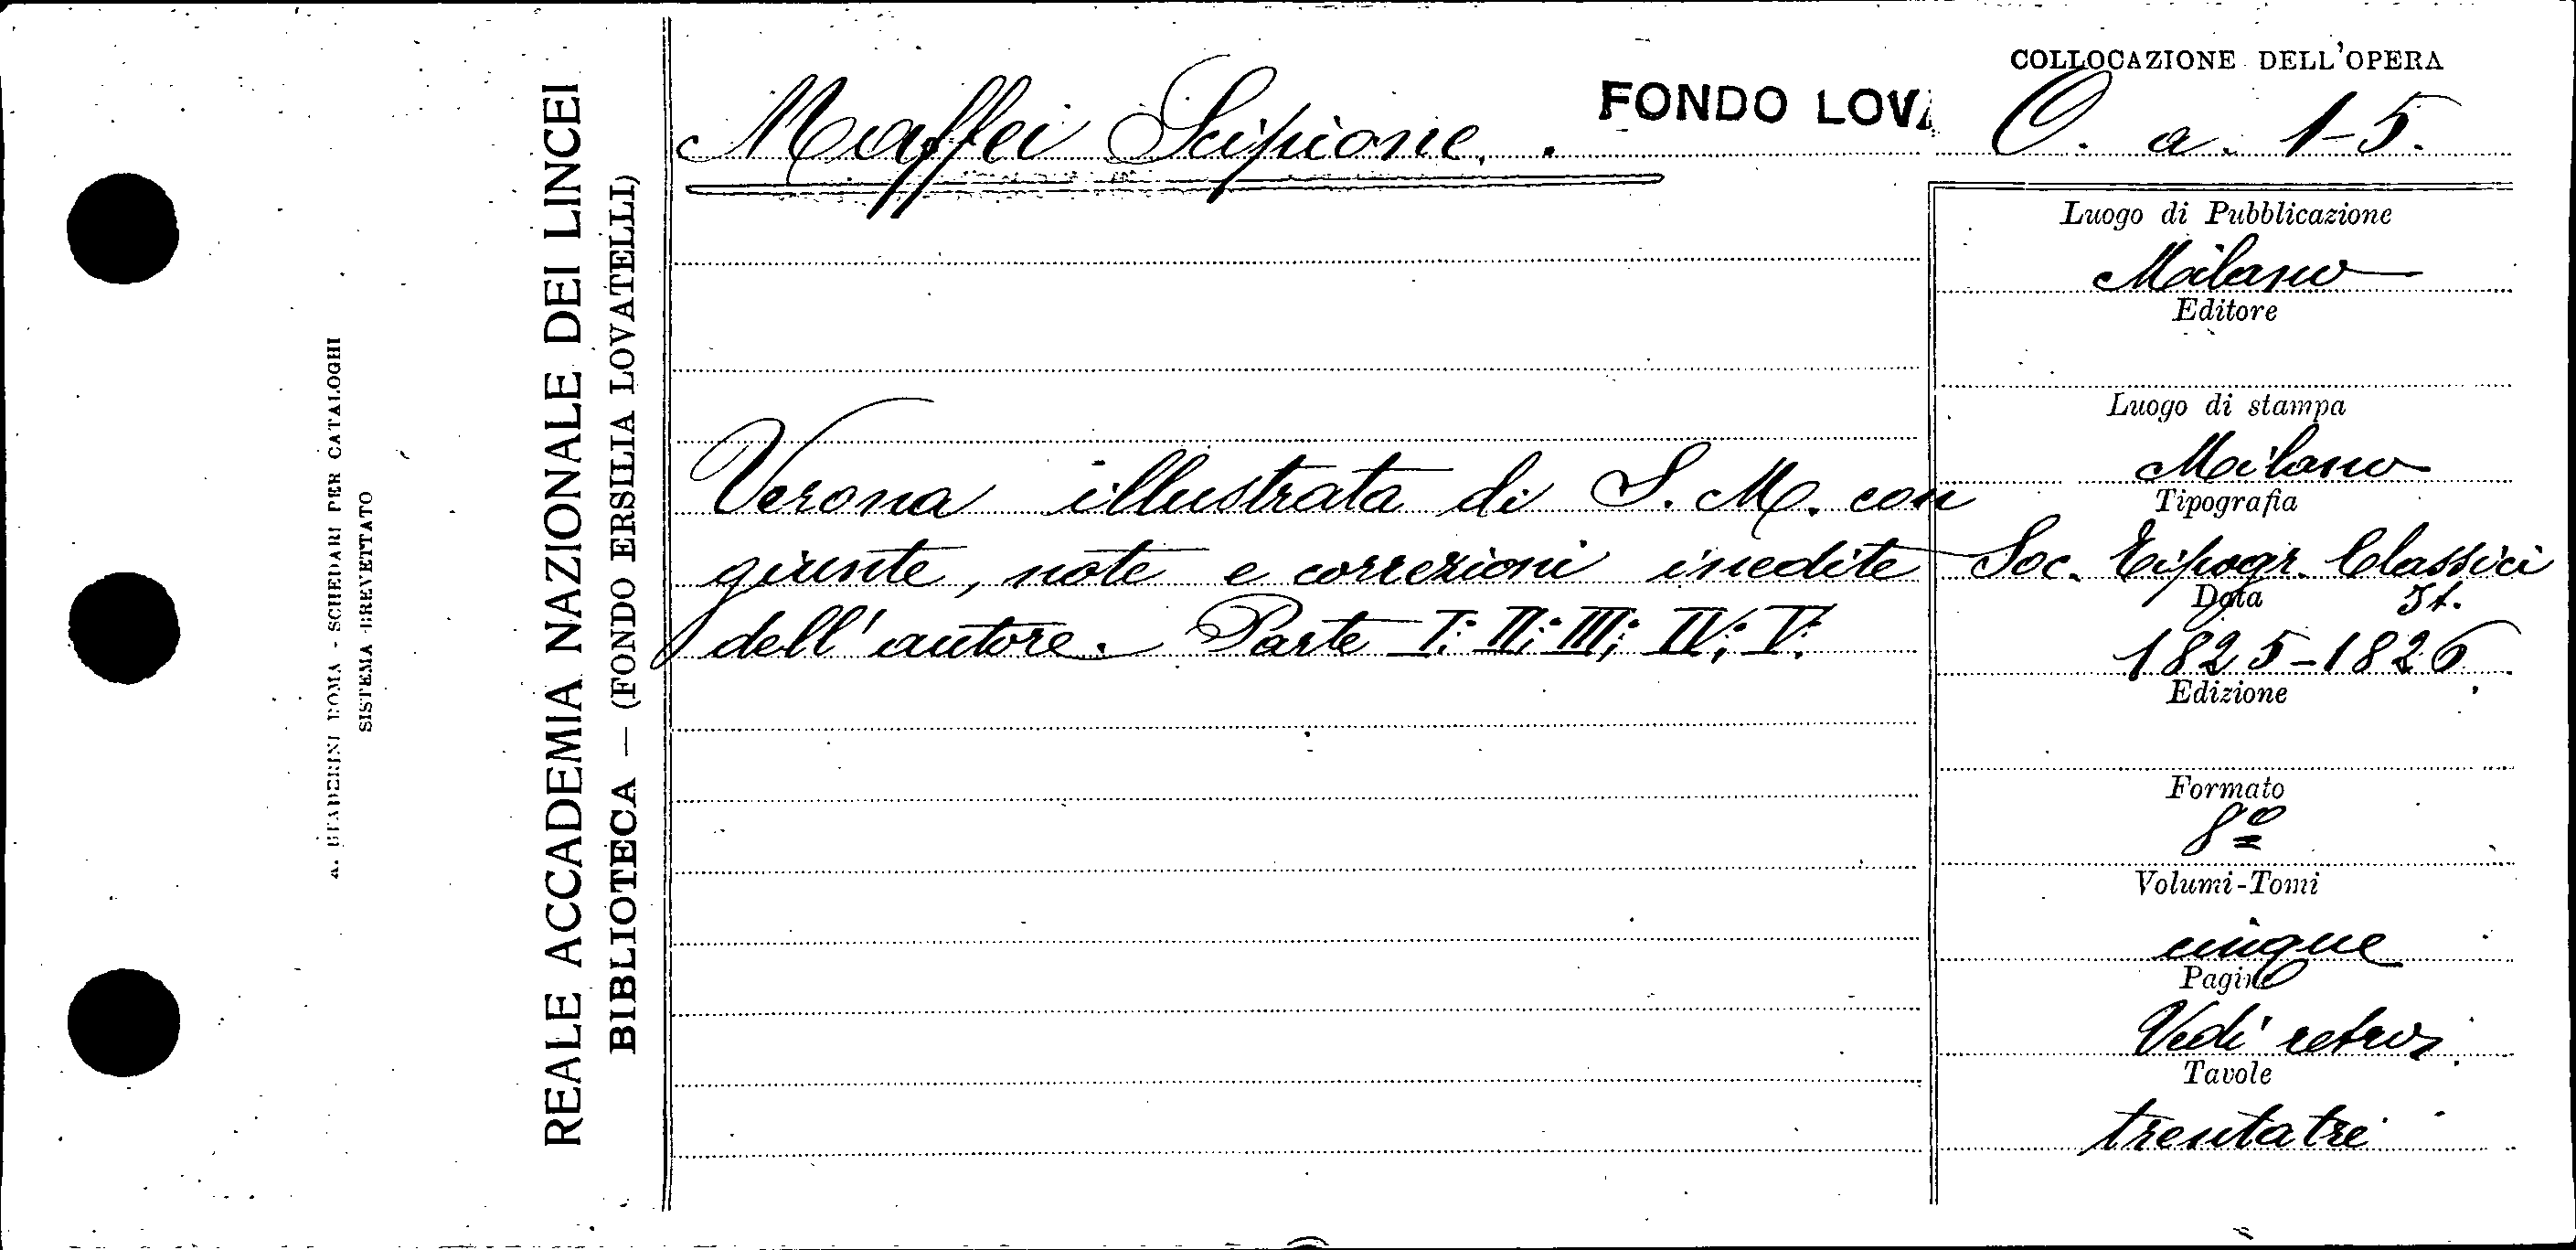 A. STADERINI ROMA - SCHEDARI PER CATALOGHI
SISTEMA BREVETTATO
REALE ACCADEMIA NAZIONALE DEI LINCEI
BIBLIOTECA — (FONDO ERSILIA LOVATELLI)
Maffei Scipione.
FONDO LOVA
COLLOCAZIONE DELL'OPERA
O. a. 1-5.
Verona illustrata di S. M. con
giunte, note e correzioni inedite
dell'autore. Parte I; II; III; IV; V.
Luogo di Pubblicazione
Milano
Editore
Luogo di stampa
Milano
Tipografia
Soc. Tipogr. Classici
It.
Data
1825-1826
Edizione
Formato
8º
Volumi-Tomi
cinque
Pagine
Vedi retro.
Tavole
trentatre